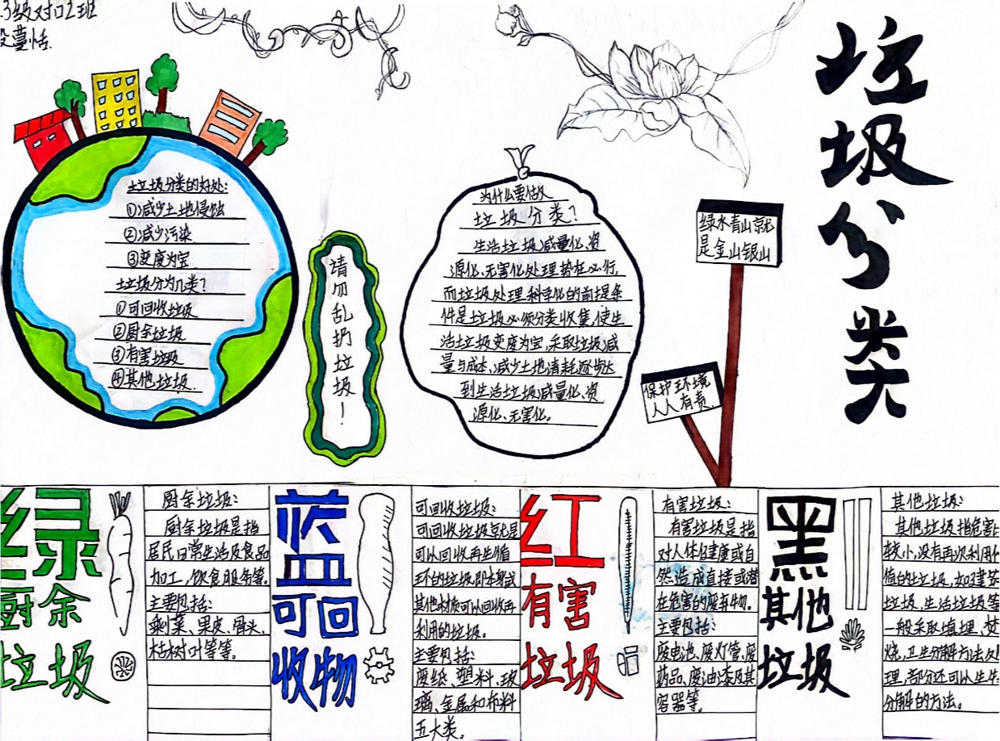 3级对口2班
垃圾分类
垃圾分类的好处:
①减少土地侵蚀
②减少污染
③变废为宝
垃圾分为几类?
①可回收垃圾
②厨余垃圾
③有害垃圾
④其他垃圾.
请勿乱扔垃圾!
为什么要做
垃圾分类?
生活垃圾减量化、资
源化、无害化处理势在必行,
而垃圾处理科学化的前提条
件是垃圾必须分类收集,使生
活垃圾变废为宝,采取垃圾减
量与成本,减少土地消耗逐步达
到生活垃圾减量化、资
源化、无害化。
绿水青山就
是金山银山
保护环境
人人有责
绿
厨余
垃圾
厨余垃圾:
厨余垃圾是指
居民日常生活及食品
加工、饮食服务等.
主要包括:
剩菜、果皮、骨头、
枯树叶等等。
蓝
可回
收物
可回收垃圾:
可回收垃圾就是
可以回收再生循
环的垃圾.即本身或
其他材质可以回收再
利用的垃圾。
主要包括:
废纸、塑料、玻
璃、金属和布料
五大类。
红
有害
垃圾
有害垃圾:
有害垃圾是指
对人体健康或自
然造成直接或潜
在危害的废弃物。
主要包括:
废电池、废灯管、废
药品、废油漆及其
容器等。
黑
其他
垃圾
其他垃圾:
其他垃圾指危害
较小,没有再次利用价
值的垃圾,如建筑
垃圾,生活垃圾等
一般采取填埋、焚
烧、卫生分解方法处
理,部分还可以生
分解的方法。